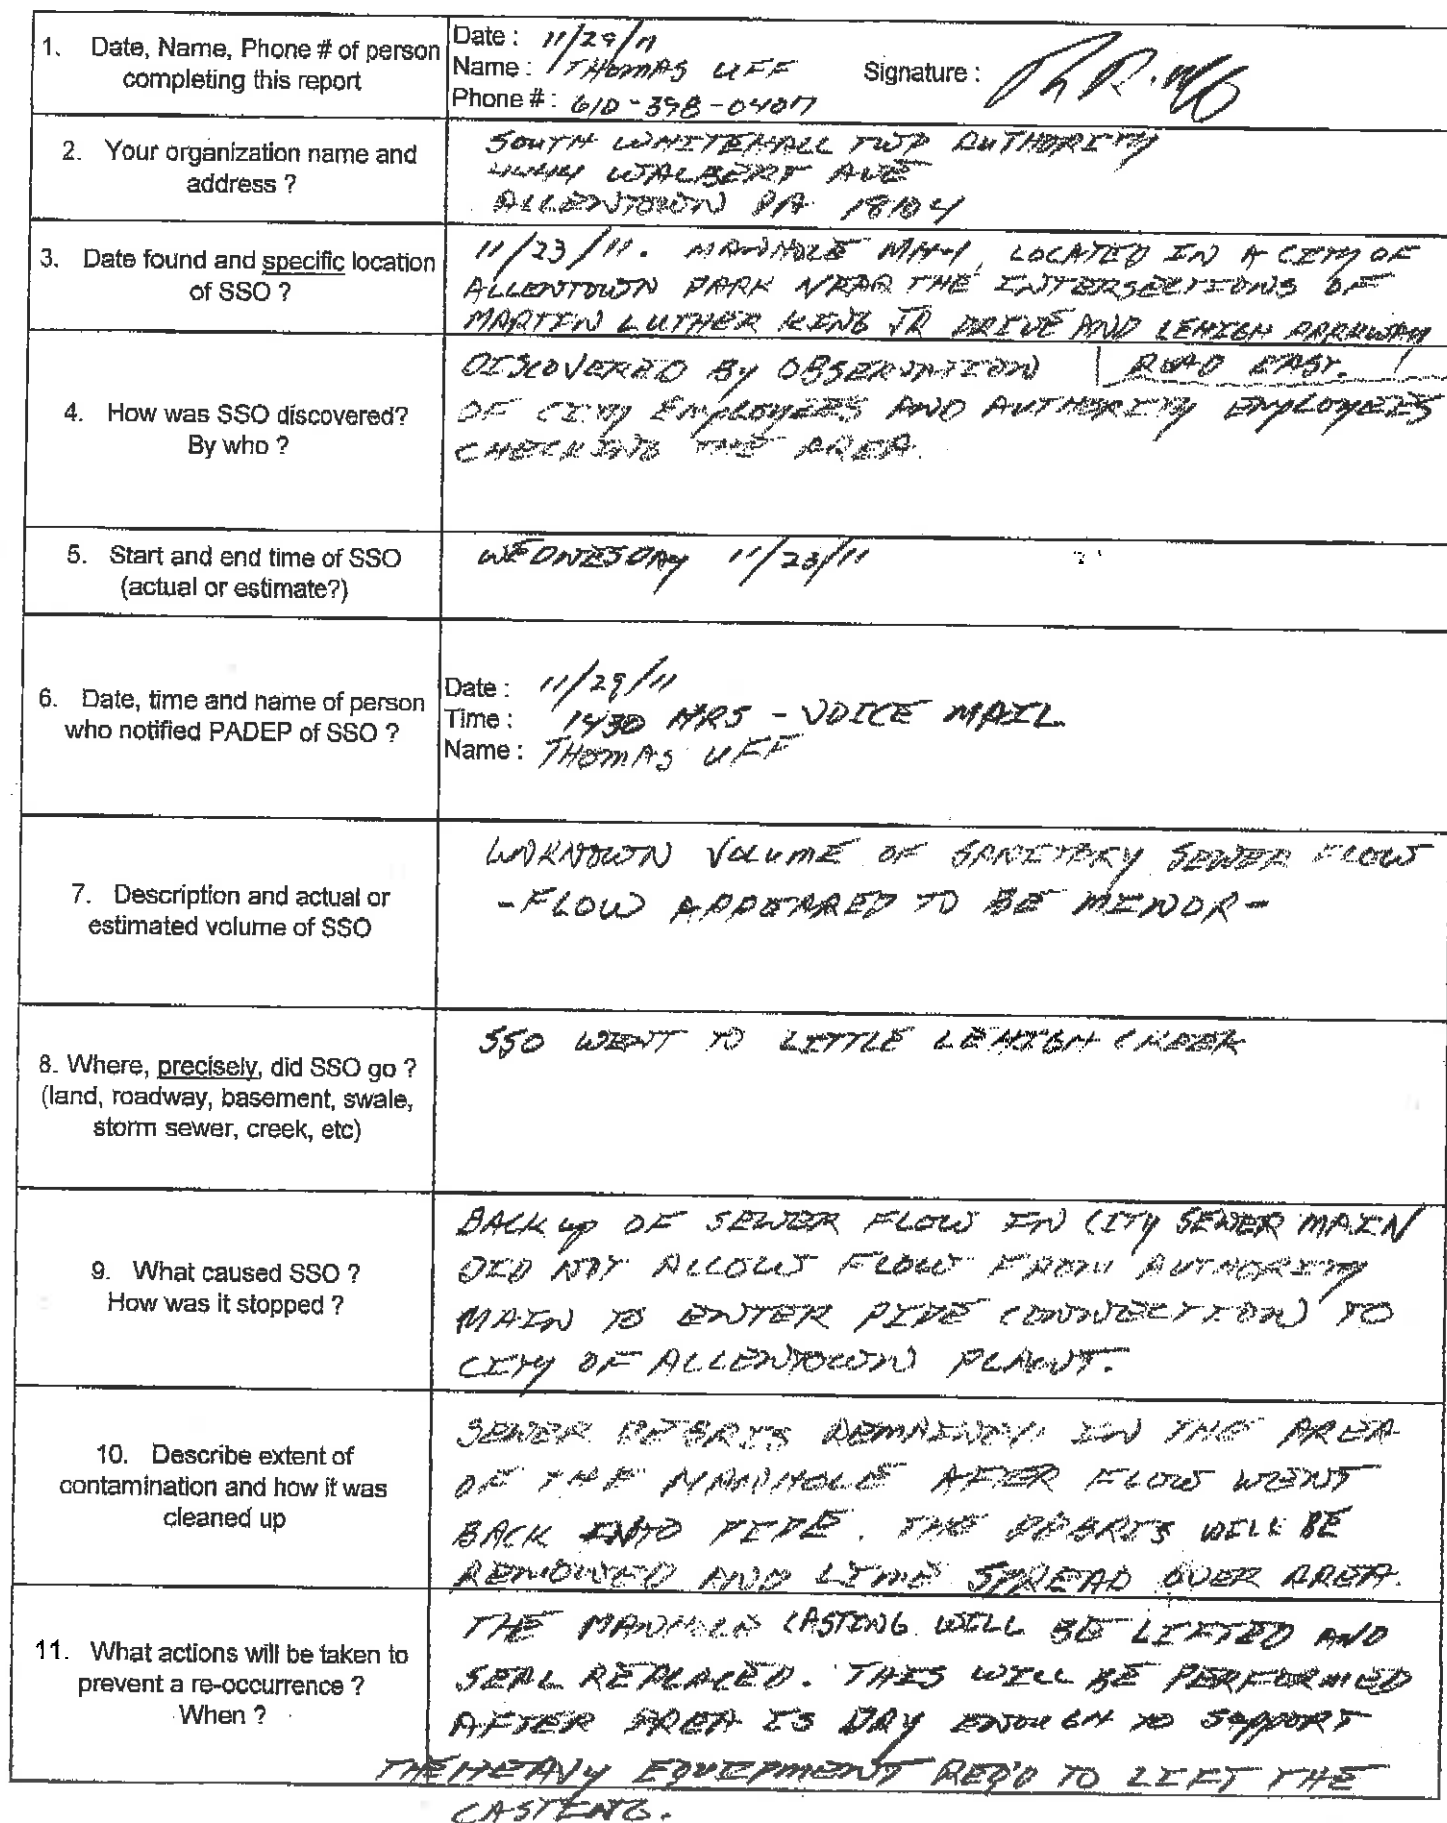 1. Date, Name, Phone # of person
completing this report
Date: 11/29/11
Name: THOMAS UFF
Signature:
Phone #: 610-398-0407
2. Your organization name and
address ?
SOUTH WHITEHALL TWP AUTHORITY
4444 WALBERT AVE
ALLENTOWN PA 18104
3. Date found and specific location
of SSO ?
11/23/11. MANHOLE MH-1, LOCATED IN A CITY OF
ALLENTOWN PARK NEAR THE INTERSECTIONS OF
MARTIN LUTHER KING JR DRIVE AND LEHIGH PARKWAY
ROAD EAST.
4. How was SSO discovered?
By who ?
DISCOVERED By OBSERVATION
OF CITY EMPLOYEES AND AUTHORITY EMPLOYEES
CHECKING THE AREA.
5. Start and end time of SSO
(actual or estimate?)
WEDNESDAY 11/23/11
6. Date, time and name of person
who notified PADEP of SSO ?
Date: 11/29/11
Time: 1430 HRS - VOICE MAIL
Name: THOMAS UFF
7. Description and actual or
estimated volume of SSO
UNKNOWN VOLUME OF SANITARY SEWER FLOW
-FLOW APPEARED TO BE MINOR-
8. Where, precisely, did SSO go ?
(land, roadway, basement, swale,
storm sewer, creek, etc)
SSO WENT TO LITTLE LEHIGH CREEK
9. What caused SSO ?
How was it stopped ?
BACK up OF SEWER FLOW IN CITY SEWER MAIN
DID NOT ALLOW FLOW FROM AUTHORITY
MAIN TO ENTER PIPE CONNECTION TO
CITY OF ALLENTOWN PLANT.
10. Describe extent of
contamination and how it was
cleaned up
SEWER DEBRIS IN THE AREA
OF THE MANHOLE AFTER FLOW WENT
BACK INTO PIPE. THE DEBRIS WILL BE
REMOVED AND LIME SPREAD OVER AREA.
11. What actions will be taken to
prevent a re-occurrence ?
When ?
THE MANHOLE CASTING WILL BE LIFTED AND
SEAL REPLACED. THIS WILL BE PERFORMED
AFTER AREA IS DRY ENOUGH TO SUPPORT
THE HEAVY EQUIPMENT REQ'D TO LIFT THE
CASTING.